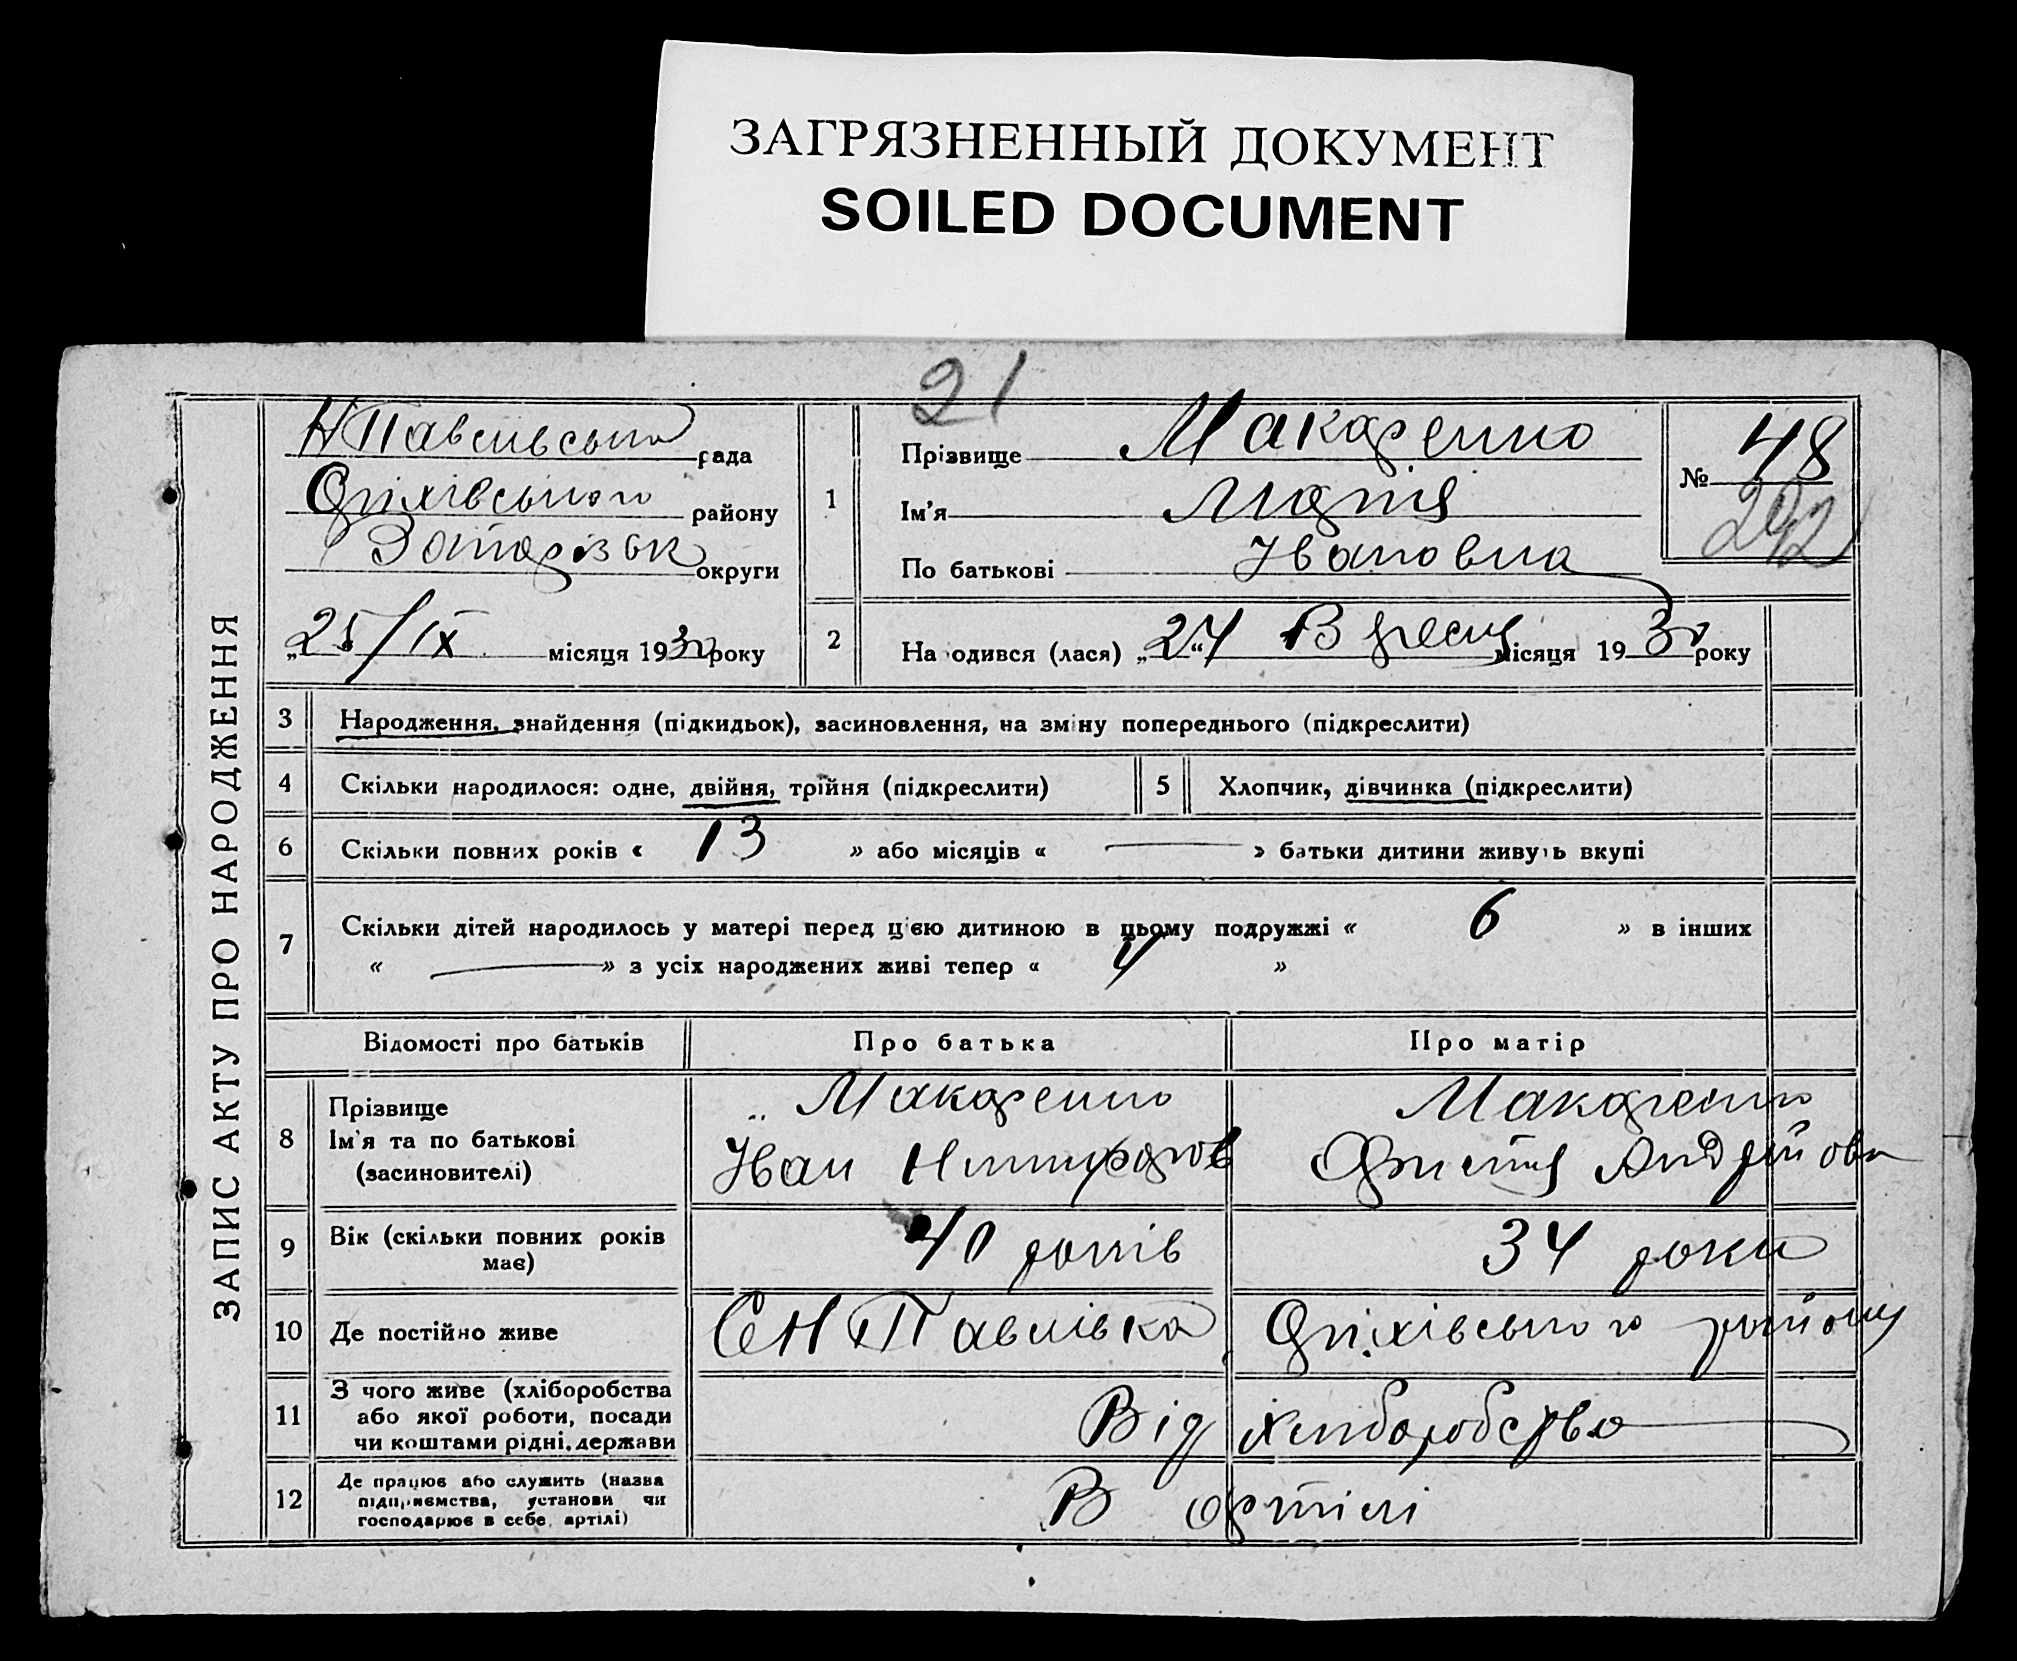 ЗАГРЯЗНЕННЫЙ ДОКУМЕНТ
SOILED DOCUMENT
21
ЗАПИС АКТУ ПРО НАРОДЖЕННЯ
НПавлівська рада
Оріхівського району
Запоріз ок округи
„25/IX місяця 1930 року
1
Прізвище Макаренко
Ім'я Марія
По батькові Івановна
№ 48
292
2 На одився (лася) „24“ Вресня місяця 1930 року
3 Народження, знайдення (підкидьок), засиновлення, на зміну попереднього (підкреслити)
4 Скільки народилося: одне, двійня, трійня (підкреслити) 5 Хлопчик, дівчинка (підкреслити)
6 Скільки повних років « 13 » або місяців « — » батьки дитини живуть вкупі
7 Скільки дітей народилось у матері перед цією дитиною в цьому подружжі « 6 » в інших
« — » з усіх народжених живі тепер « 4 »
Відомості про батьків Про батька Про матір
8 Прізвище
Ім'я та по батькові
(засиновителі)
Макаренко
Іван Никифоров
Макаренко
Христя Андрійовн
9 Вік (скільки повних років має) 40 років 34 роки
10 Де постійно живе СНПавлівка Оріхівського району
11 З чого живе (хліборобства
або якої роботи, посади
чи коштами рідні, держави
Від хліборобства
12 Де працює або служить (назва
підприємства, установи чи
господарює в себе, артілі)
В артілі